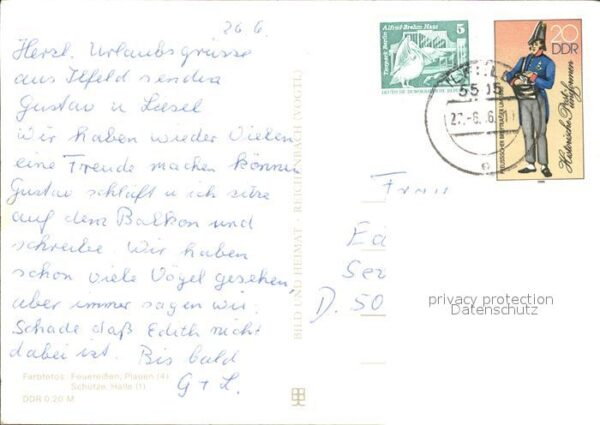 26.6.
Herzl. Urlaubsgrüsse
aus Ilfeld senden
Gustav u Liesel
Wir haben wieder Vielen
eine Freude machen können
Gustav schläft u ich sitze
auf dem Balkon und
schreibe. Wir haben
schon viele Vögel gesehen,
aber immer sagen wir:
Schade daß Edith nicht
dabei ist. Bis bald
G + L.
Farbfotos: Feuereißen, Plauen (4)
Schütze, Halle (1)
DDR 0,20 M
BILD UND HEIMAT REICHENBACH (VOGTL)
Tierpark Berlin
Alfred-Brehm-Haus
5
DEUTSCHE DEMOKRATISCHE REPUBLIK
20
DDR
PREUSSISCHER BRIEFTRÄGER UM
Historische Postuniformen
5505
27.-6.
Frau
Ed
Ser
D. 50
privacy protection
Datenschutz